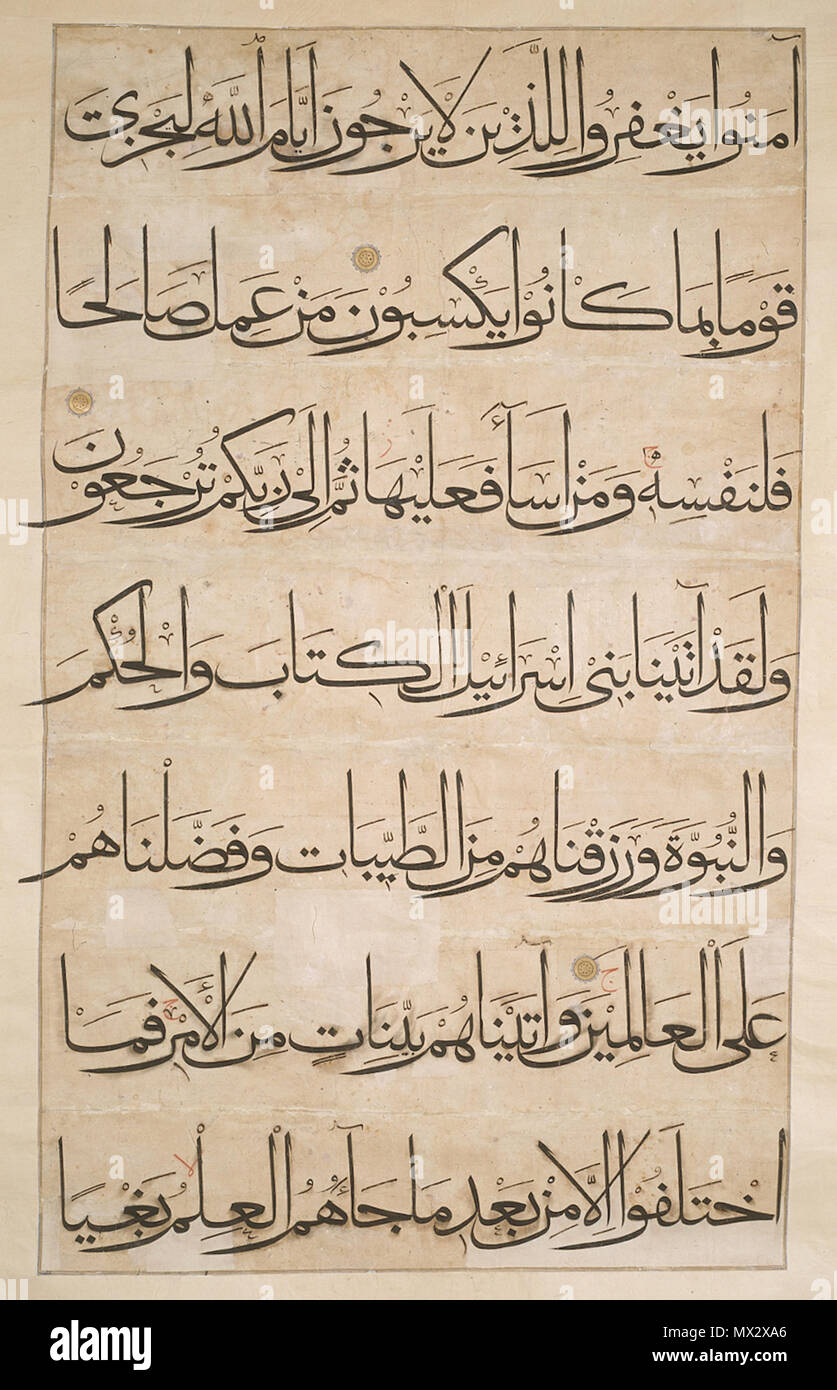 آمَنُوا يَغْفِرُوا لِلَّذِينَ لَا يَرْجُونَ أَيَّامَ اللَّهِ لِيَجْزِيَ
قَوْمًا بِمَا كَانُوا يَكْسِبُونَ مَنْ عَمِلَ صَالِحًا
فَلِنَفْسِهِ وَمَنْ أَسَاءَ فَعَلَيْهَا ثُمَّ إِلَى رَبِّكُمْ تُرْجَعُونَ
وَلَقَدْ آتَيْنَا بَنِي إِسْرَائِيلَ الْكِتَابَ وَالْحُكْمَ
وَالنُّبُوَّةَ وَرَزَقْنَاهُمْ مِنَ الطَّيِّبَاتِ وَفَضَّلْنَاهُمْ
عَلَى الْعَالَمِينَ وَآتَيْنَاهُمْ بَيِّنَاتٍ مِنَ الْأَمْرِ فَمَا
اخْتَلَفُوا إِلَّا مِنْ بَعْدِ مَا جَاءَهُمُ الْعِلْمُ بَغْيًا
alamy
Image ID: MX2XA6
www.alamy.com